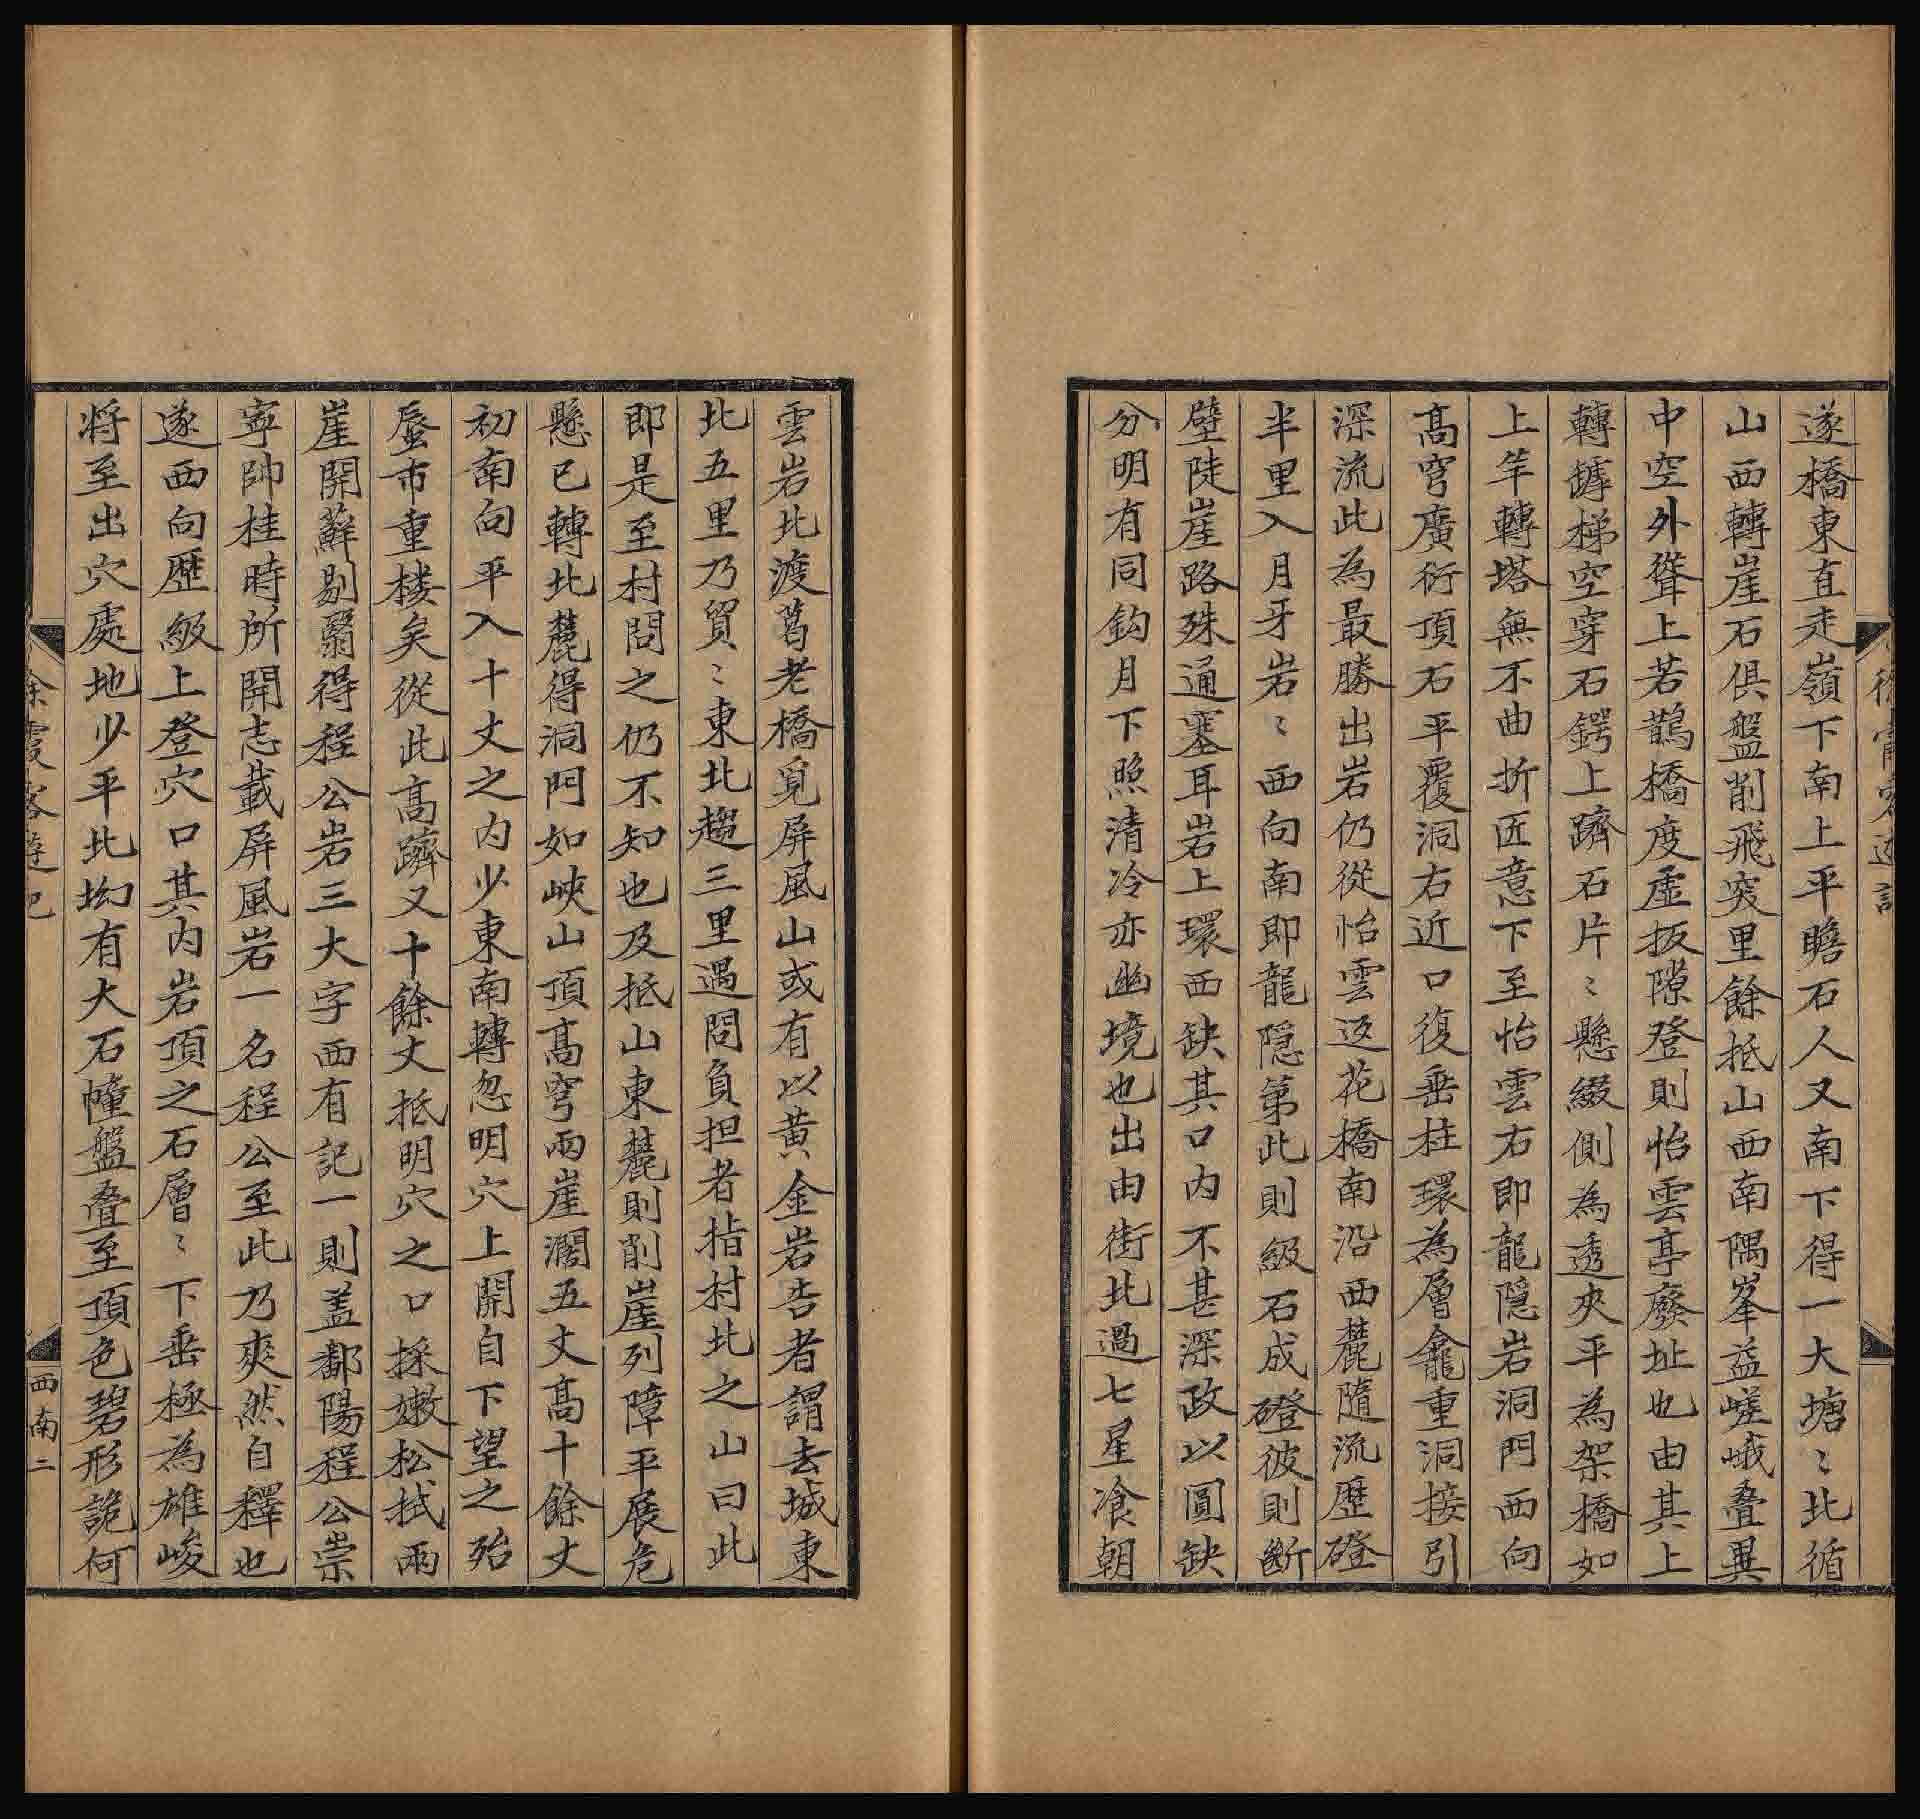 遂橋東直走嶺下南上平瞻石人又南下得一大塘〻北循
山西轉崖石俱盤削飛突里餘抵山西南隅峯益嵯峨叠異
中空外聳上若鵲橋度虛扳隙登則怡雲亭廢址也由其上
轉罅梯空穿石鍔上躋石片〻懸綴側為透夾平為架橋如
上竿轉塔無不曲折匠意下至怡雲右即龍隱岩洞門西向
高穹廣衍頂石平覆洞右近口復垂柱環為層龕重洞接引
深流此為最勝出岩仍從怡雲返花橋南沿西麓隨流歷磴
半里入月牙岩〻西向南即龍隱第此則級石成磴彼則斷
壁陡崖路殊通塞耳岩上環西缺其口內不甚深政以圓缺
分明有同鈎月下照清冷亦幽境也出由街北過七星飡朝
雲岩北渡葛老橋覓屏風山或有以黃金岩告者謂去城東
北五里乃貿〻東北趨三里遇問負担者指村北之山曰此
即是至村問之仍不知也及抵山東麓則削崖列障平展危
懸已轉北麓得洞門如峽山頂高穹兩崖濶五丈高十餘丈
初南向平入十丈之內少東南轉忽明穴上開自下望之殆
蜃市重楼矣從此高躋又十餘丈抵明穴之口採嫩松拭兩
崖開蘚剔翳得程公岩三大字西有記一則盖鄱陽程公崇
寧帥桂時所開志載屏風岩一名程公至此乃爽然自釋也
遂西向歷級上登穴口其內岩頂之石層〻下垂極為雄峻
將至出穴處地少平北坳有大石幢盤叠至頂色碧形詭何
西南二